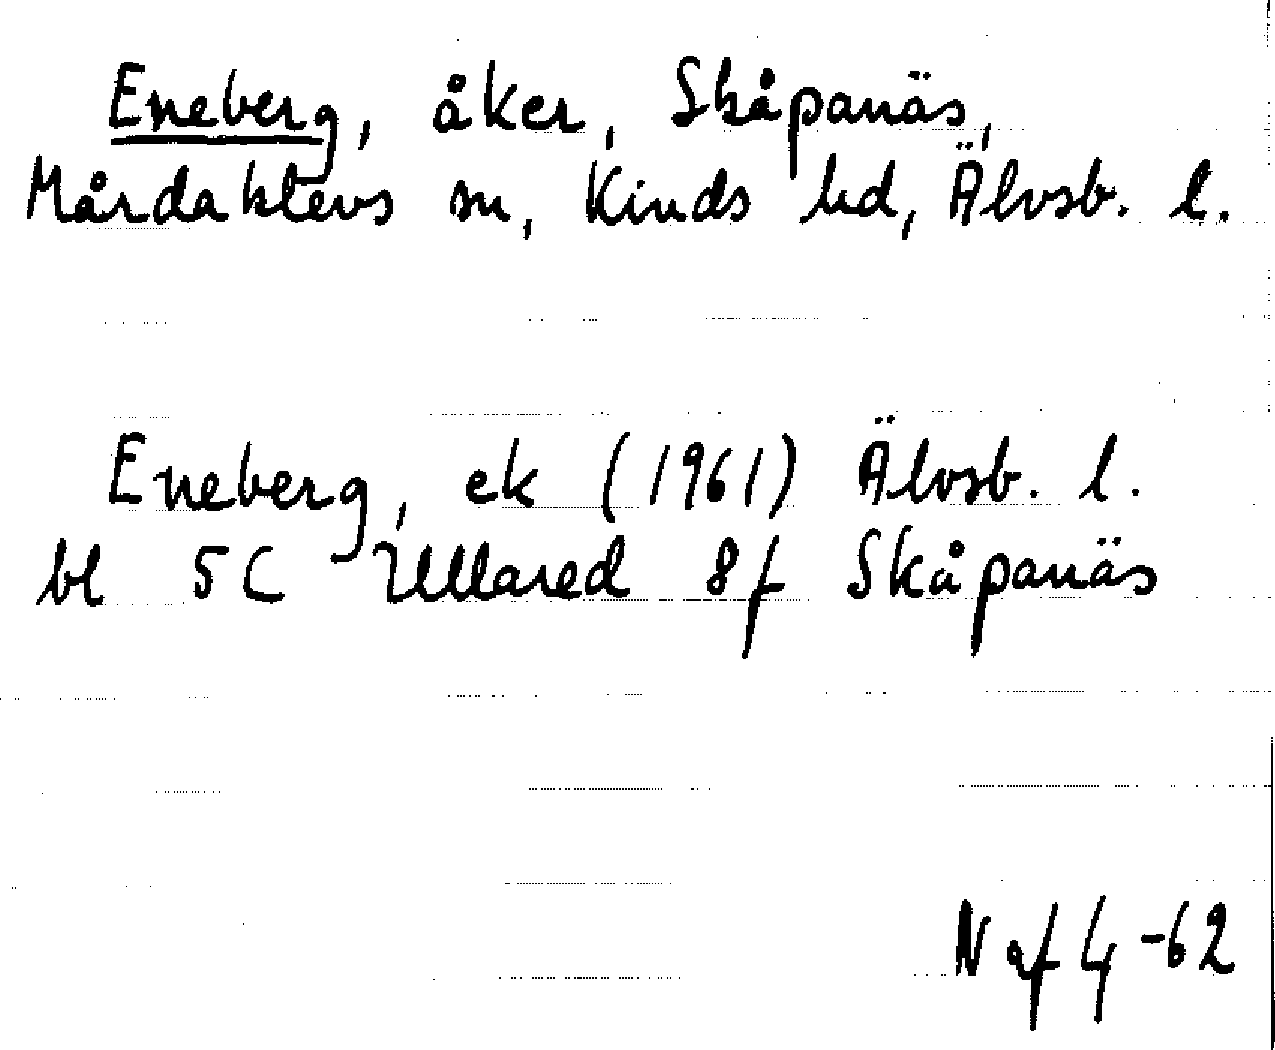 Eneberg, åker, Skåpanäs,
Mårdaklevs sn, Kinds hd, Älvsb. l.
Eneberg, ek (1961) Älvsb. l.
bl 5C Ullared 8f Skåpanäs
N af 4 -62